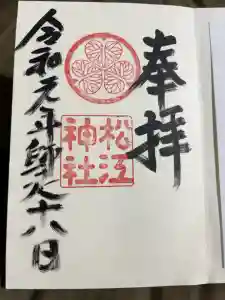 奉拝
松江
神社
令和元年九月二十八日